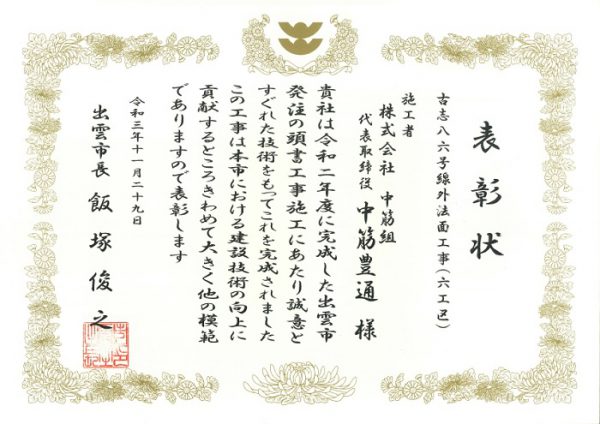 表彰状
古志八六号線外法面工事(六工区)
施工者
株式会社 中筋組
代表取締役 中筋豊通 様
貴社は令和二年度に完成した出雲市
発注の頭書工事施工にあたり誠意と
すぐれた技術をもってこれを完成されました
この工事は本市における建設技術の向上に
貢献するところきわめて大きく他の模範
でありますので表彰します
令和三年十一月二十九日
出雲市長 飯塚俊之